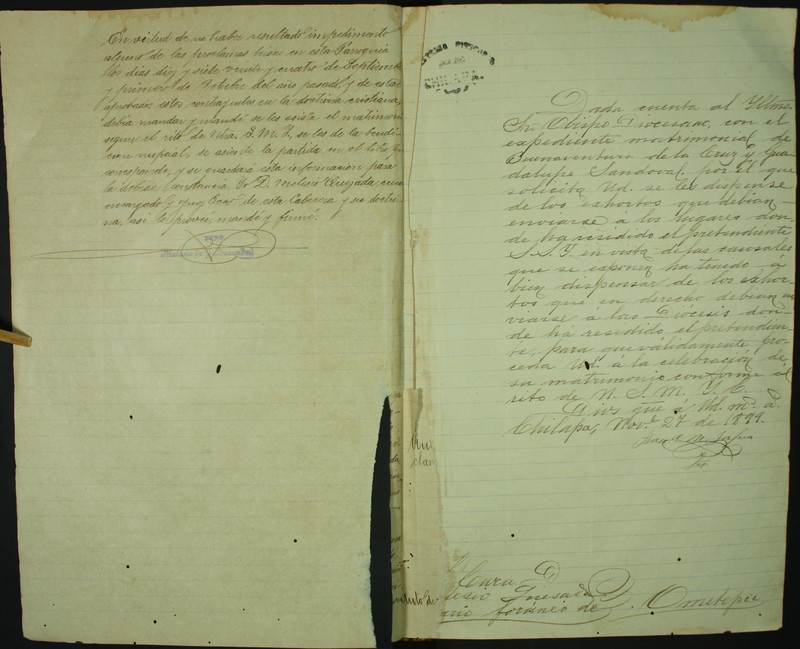 En virtud de no haber resultado impedimento
alguno de las proclamas leidas en esta Parroquia
los dias diez y siete veinte y cuatro de Septiembre
y primero de Octubre del año pasado, y de estar
aprobados estos contrayentes en la doctrina cristiana,
debia mandar y mandé se les asista el matrimonio
segun el rito de Ntra. S. M. I., se les dé la bendi-
cion nupcial, se asiente la partida en el libro que
corresponde, y se guardará esta informacion para
la debida constancia. Yo D. Melesio Quezada cura
encargado y Juez Ecco. de esta Cabecera y su doctri-
na, asi lo proveí, mandé y firmé.
Dada cuenta al Yllmo.
Sr. Obispo Diocesano, con el
expediente matrimonial de
Buenaventura de la Cruz y Gua-
dalupe Sandoval, por el que
solicita Ud. se les dispense
de los exhortos que debian
enviarse á los lugares don-
de ha residido el pretendiente
S. S. Y. en vista de las causales
que se esponen ha tenido á
bien dispensar de los exhor-
tos que en derecho debian en
viarse á las Diócesis don-
de ha residido el pretendien-
te, para que válidamente pro-
ceda Ud. á la celebración de
su matrimonio conforme al
rito de N. S. M. Y. C.
Dios gue á Ud. m. a.
Chilapa, Nov. 27 de 1899.
Srio
Cura D.
lesio Quesada
ario foráneo de Ometepec